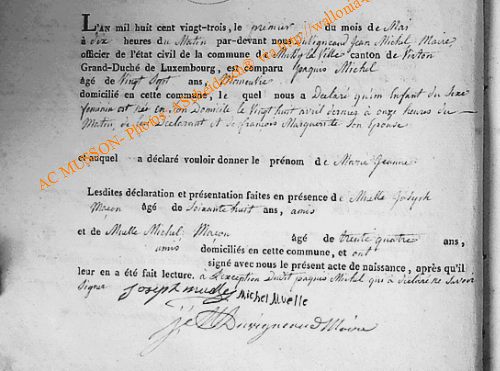 L'AN mil huit cent vingt-trois, le premier du mois de Mai
à dix heures du Matin par-devant nous Duvigneaud Jean Michel Maire
officier de l'état civil de la commune de Mussy la Ville canton de Virton
Grand-Duché de Luxembourg, est comparu jaques Michel
âgé de Vingt Sept ans,
domicilié en cette commune, le quel nous a Declaré qu'un Enfant du Sexe
feminin est née en son Domicile le Vingt huit avril dernier à onze heures du
Matin de lui Declarant et de francois Marguerite Son Epouse
et auquel a déclaré vouloir donner le prénom de Marie Jeanne
Lesdites déclaration et présentation faites en présence de Muelle Joseph
Macon âgé de Soixante huit ans, amis
et de Muelle Michel Macon âgé de trente quatre ans,
amis domiciliés en cette commune, et ont
signé avec nous le présent acte de naissance, après qu'il
leur en a été fait lecture. à l'exception Dudit jaques Michel qui a declaré ne Savoir
Signer
Joseph muelle Michel Muelle
Duvigneaud Maire
AC MUSSON- Photos